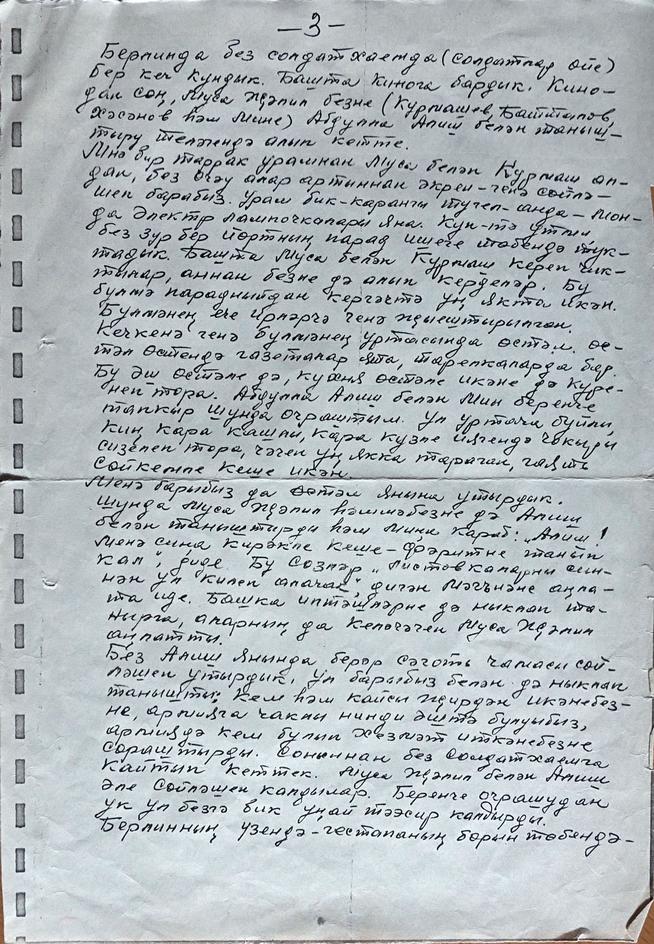 — 3 —
Берлинда без солдатхаемда (солдатлар өйе)
бер кеч кундык. Башта киного бардык. Кино-
дан соң, Муса Җәлил безне (Курмашев, Батталов,
Хәсәнов һәм мине) Абдулла Алиш белән таныш-
тыру теләгендә алып китте.
Мнә бер таррак урамнан Муса белән Курмаш ал-
дан, без өчәү алар артыннан әкрен-генә сөйлә-
шеп барабыз. Урам бик караңгы түгел анда-мон-
да электр лампочкалары яна. Күп-тә үтми,
без зур бер йортның парад ишеге төбендә тук-
тадык. Башта Муса белән Курмаш кереп чык-
тылар, аннан безне дә алып керделәр. Бу
бүлмә парадныйдан кергәчтә уң якта икән.
Бүлмәнең эче ирләрчә генә җыештырылган.
Кечкенә генә бүлмәнең уртасында өстәл. өс-
тәл өстендә газеталар ята, тарелкаларда бар.
Бу эш өстәле дә, кухня өстәле икәне дә күре-
неп тора. Абдулла Алиш белән мин беренче
тапкыр шунда очраштым. Ул уртача буйлы,
киң кара кашлы, кара күзле йөзендә чокыры
сизелеп тора, чәчен уң якка тараган, гаять
сөйкемле кеше икән.
Менә барыбыз да өстәл янына утырдык.
Шунда Муса Җәлил һәммәбезне дә Алиш
белән таныштырды һәм миңа карап: „Алиш!
менә сиңа кирәкле кеше – Фәритне танып
кал", диде. Бу сүзләр „Листовкаларны син-
нән ул килеп алачак", дигән мәгънәне аңла-
та иде. Башка иптәшләрне дә ныклап та-
нырга, аларның да киләчәген Муса Җәлил
аңлатты.
Без Алиш янында берәр сәгать чамасы сөй-
ләшеп утырдык. Ул барыбыз белән дә ныклап
танышты, кем һәм кайсы җирдән икәнебез-
не, армияга чаклы нинди эштә булуыбыз,
армиядә кем булып хезмәт иткәнебезне
сораштырды. Соңыннан без солдатхаемга
кайтып киттек. Муса Җәлил белән Алиш
әле сөйләшеп калдылар. Беренче очрашудан
ук ул безгә бик уңай тәэсир калдырды.
Берлинның үзендә – гестапаның борын төбендә –